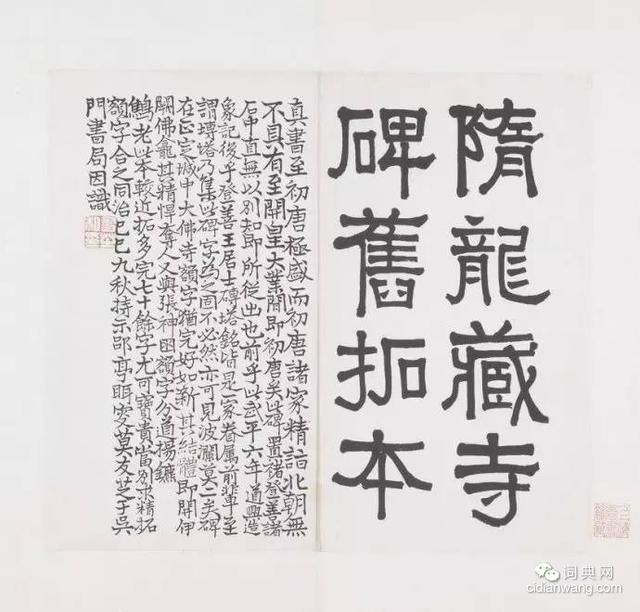 隋龍藏寺
碑舊拓本
真書至初唐極盛而初唐諸家精詣北朝無
不具有至開皇大業間即初唐矣此碑置褚登善諸
石中直無以別知即所從出也前乎此武平六年道興造
象記後乎登善王居士磚塔銘皆是一家眷屬前輩至
謂磚塔乃集此碑字為之固不必然亦可見波瀾莫二矣碑
在正定城中大佛寺額字猶完好如新其結體即開伊
闕佛龕其精悍奪人又與張神冏額字分道揚鑣
鶴老此本較近拓多完七十餘字尤可寶貴當別求精拓
額字合之同治己巳九秋持示郘亭眲叟莫友芝于吳
門書局因識
词典网
cidianwang.com